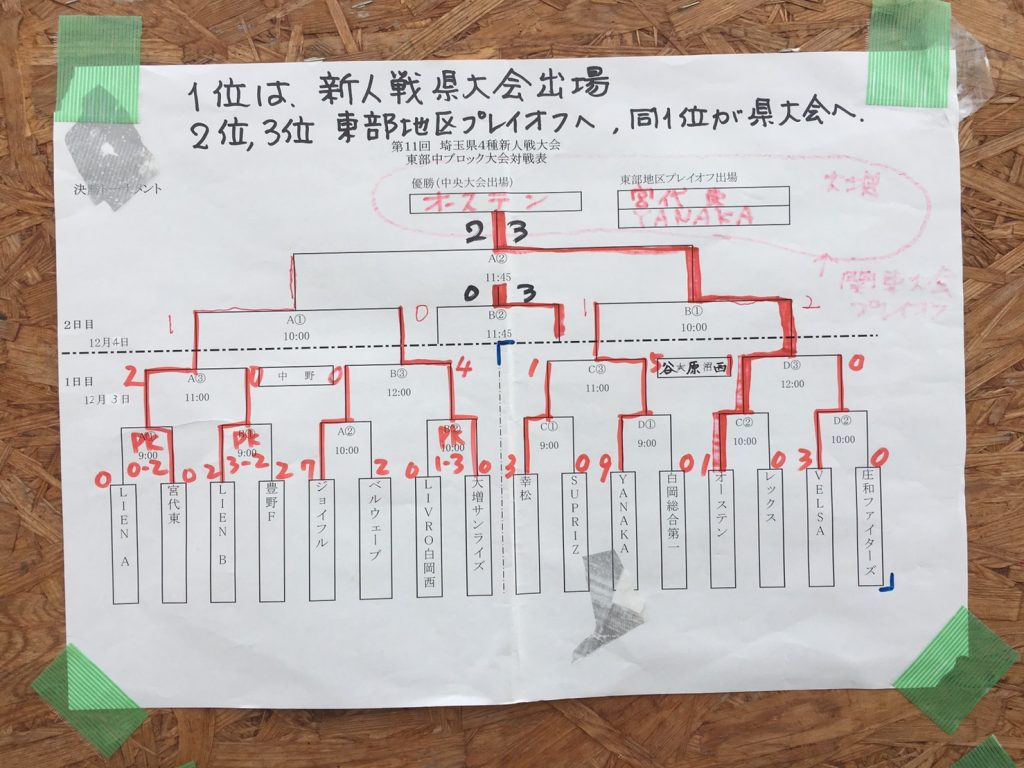 1位は、新人戦県大会出場
2位,3位 東部地区プレイオフへ,同1位が県大会へ.
第11回 埼玉県4種新人戦大会
東部中ブロック大会対戦表
決勝トーナメント
優勝(中央大会出場)
オーステン
東部地区プレイオフ出場
宮代東
YANAKA
関東大会
プレイオフ
2 3
A②
11:45
0 3
B②
11:45
2日目
12月4日
1 A① 10:00 0
1 B① 10:00 2
1日目
12月3日
2 A③ 11:00 0
中野
0 B③ 12:00 4
1 C③ 11:00 5
谷 大 原 沼 西
1 D③ 12:00 0
PK 9:00 0-2
PK 9:00 3-2
A② 10:00
PK 10:00 1-3
C① 9:00
D① 9:00
C② 10:00
D② 10:00
0 0 2 2 7 2 0 0 3 0 9 0 1 0 3 0
LIEN A
宮代東
LIEN B
豊野F
ジョイフル
ベルウェーブ
LIVRO白岡西
大増サンライズ
幸松
SUPRIZ
YANAKA
白岡総合第一
オーステン
レックス
VELSA
庄和ファイターズ